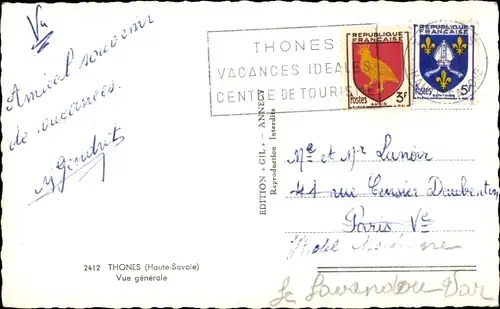 Vu
Amical souvenir
de vacances.
THONES
VACANCES IDEALES
CENTRE DE TOURISME
REPUBLIQUE
FRANÇAISE
postes
AUNIS
3F
REPUBLIQUE
FRANÇAISE
postes
5F
EDITION « GIL » - ANNECY
Reproduction Interdite
2412 THONES (Haute-Savoie)
Vue générale
Me et Mr Lanoir
44 rue Censier Daubenton
Paris, Ve
Hotel
Le Lavandou Var